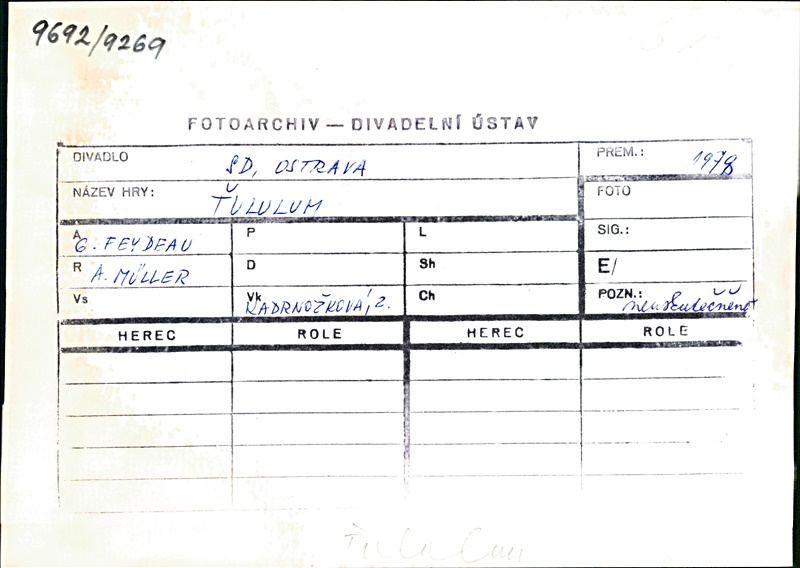 9692/9269
FOTOARCHIV — DIVADELNÍ ÚSTAV
DIVADLO SD, OSTRAVA
PREM.: 1978
NÁZEV HRY: ŤULULUM
FOTO
A G. FEYDEAU
P
L
SIG.:
R A. MÜLLER
D
Sh
E/
Vs
Vk KADRNOŽKOVÁ, Z.
Ch
POZN.: neuskutečněno
HEREC ROLE HEREC ROLE
Ťululum